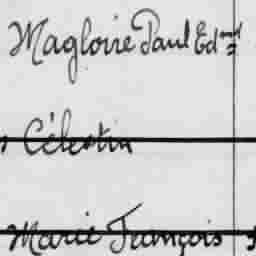 Magloire Paul Edmd
Célestin
Marie François